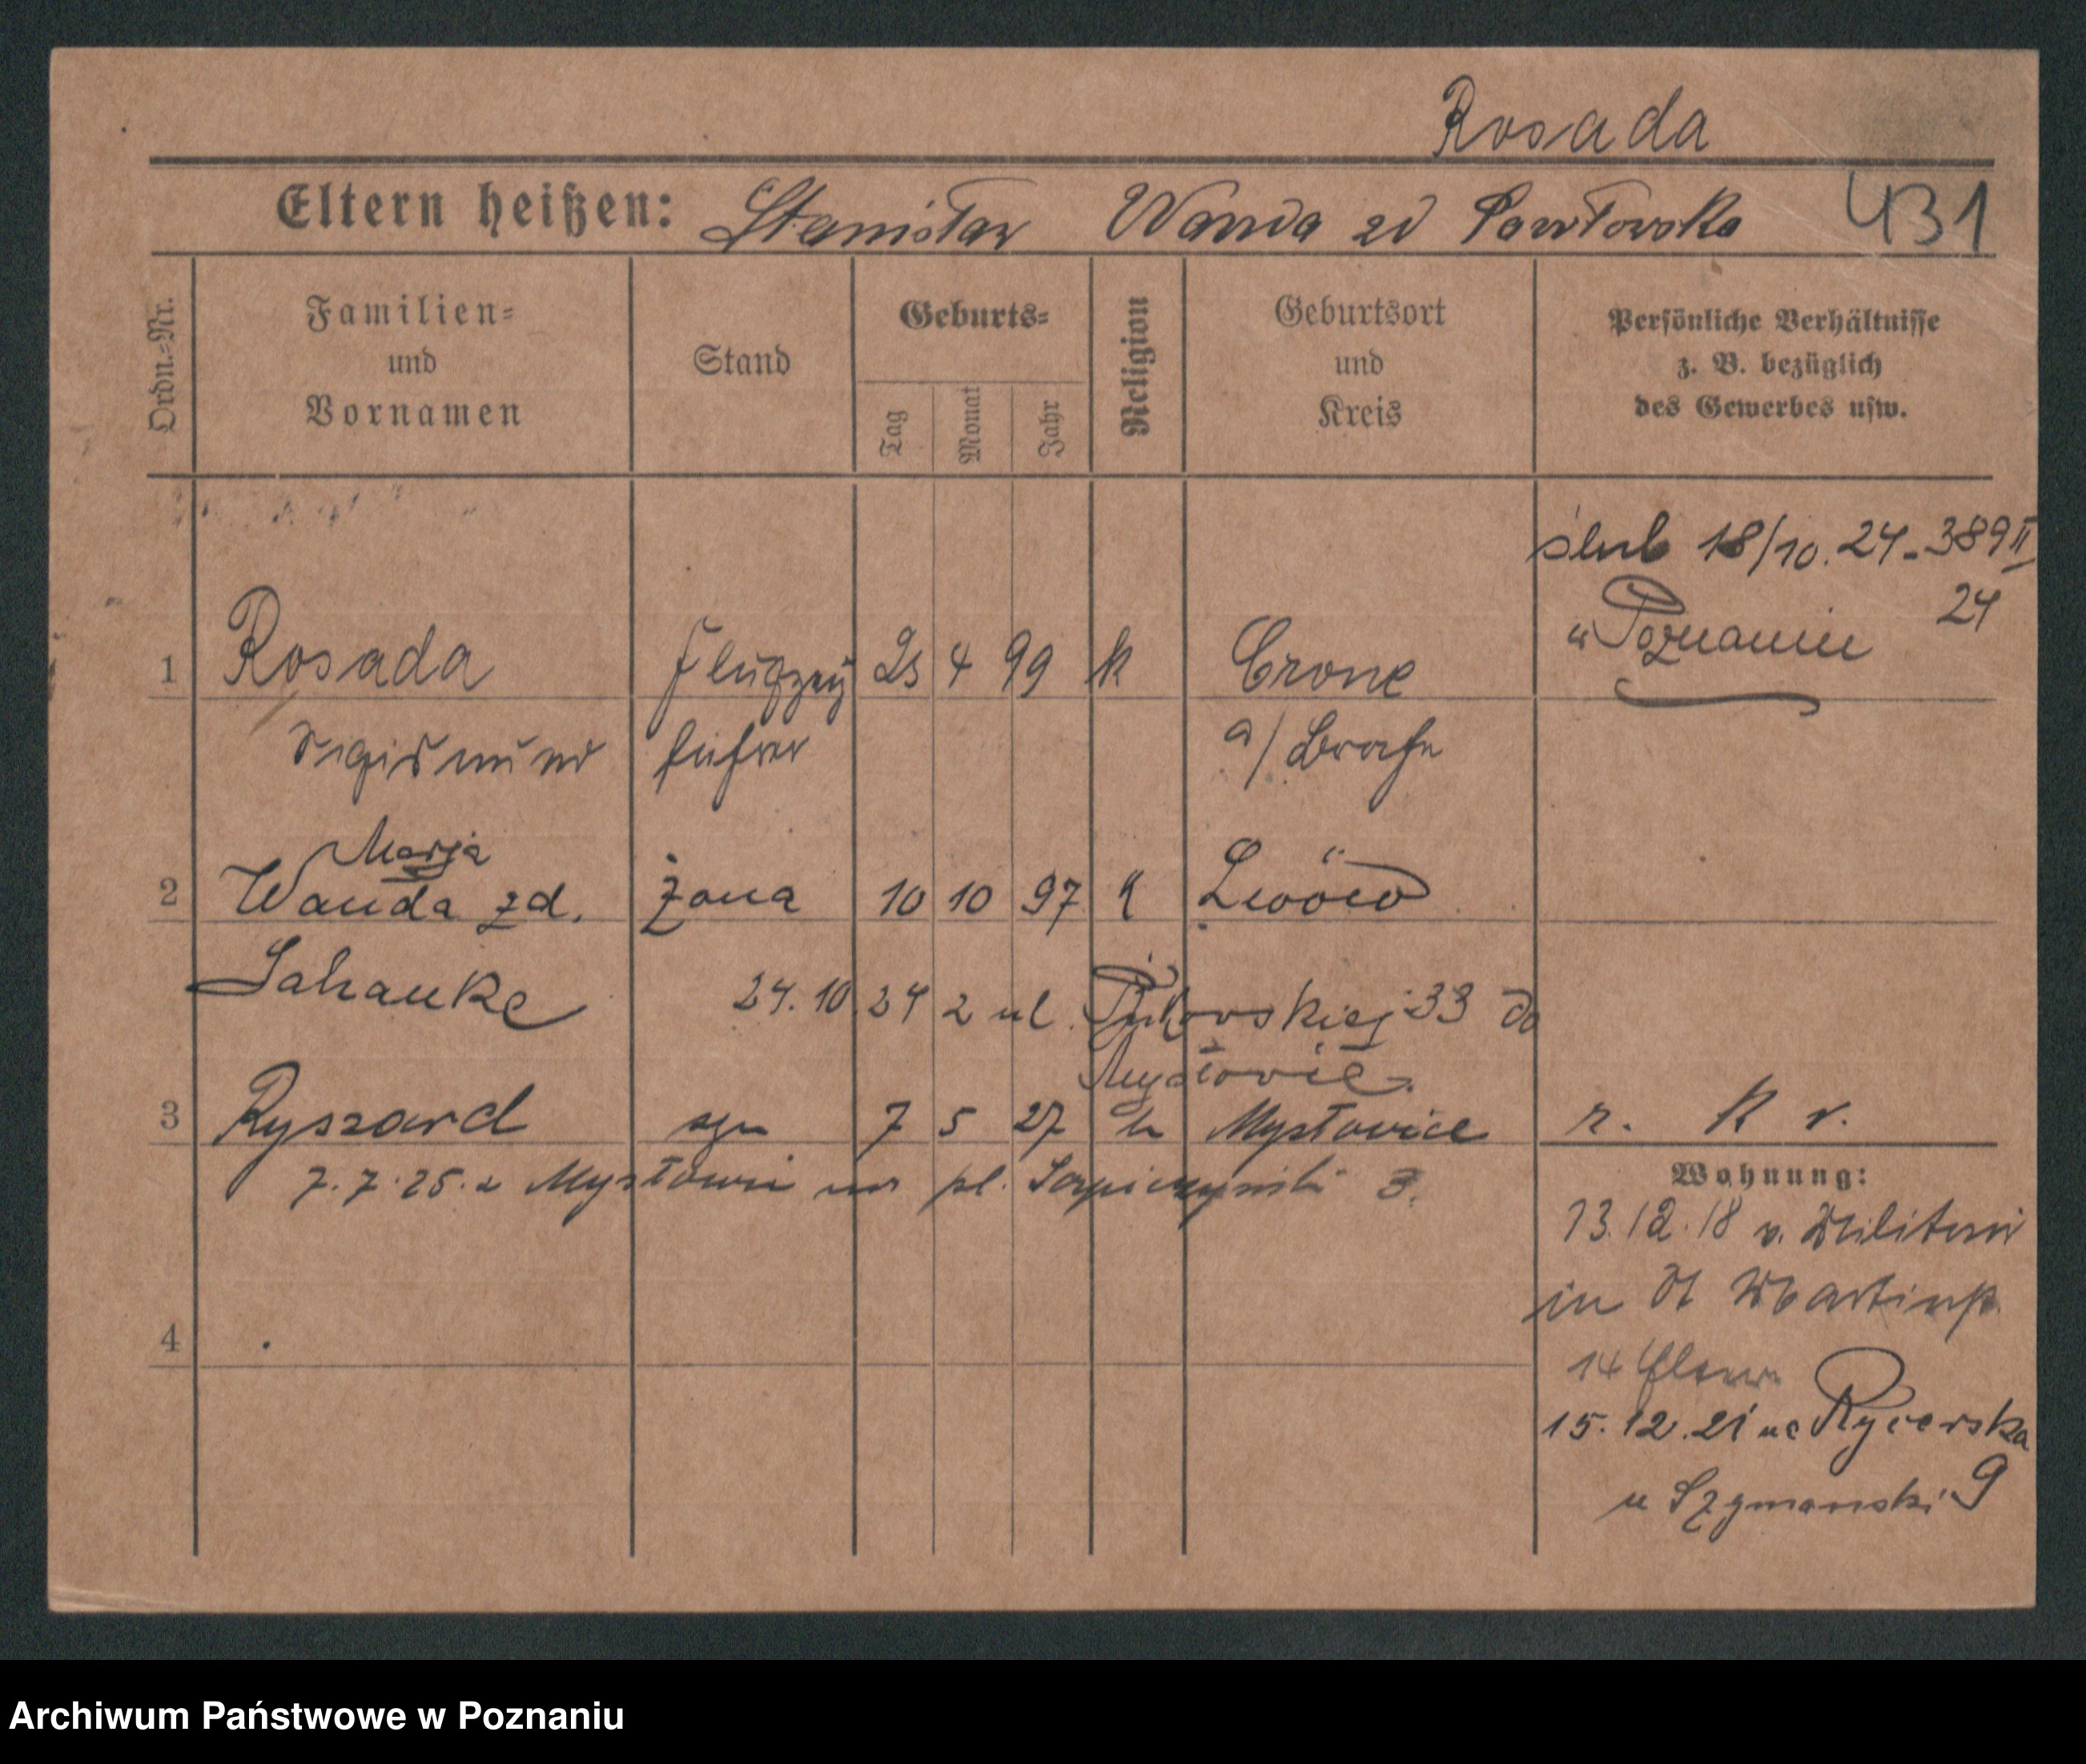 Rosada
Eltern heißen: Stanisław Wanda zd Pawłowska 431
Ordn.-Nr.
Familien-
und
Vornamen
Stand
Geburts-
Tag
Monat
Jahr
Religion
Geburtsort
und
Kreis
Persönliche Verhältnisse
z. B. bezüglich
des Gewerbes usw.
ślub 18/10. 24 - 389 II
24
w Poznaniu
1 Rosada Flugzeug 23 4 99 k Crone
Sigismund führer a/ Brahe
Marja
2 Wanda zd. żona 10 10 97 k Lwów
24.10 24 z ul. 33 do
Mysłowic.
3 Ryszard syn 7 5 27 k Mysłowice r. k v.
7.7.25. z Mysłowic na pl. 3.
Wohnung:
13.12.18 v. Militär
in St Martinstr.
4
14
15.12.21 na Rycerska
u Szymański 9
Archiwum Państwowe w Poznaniu